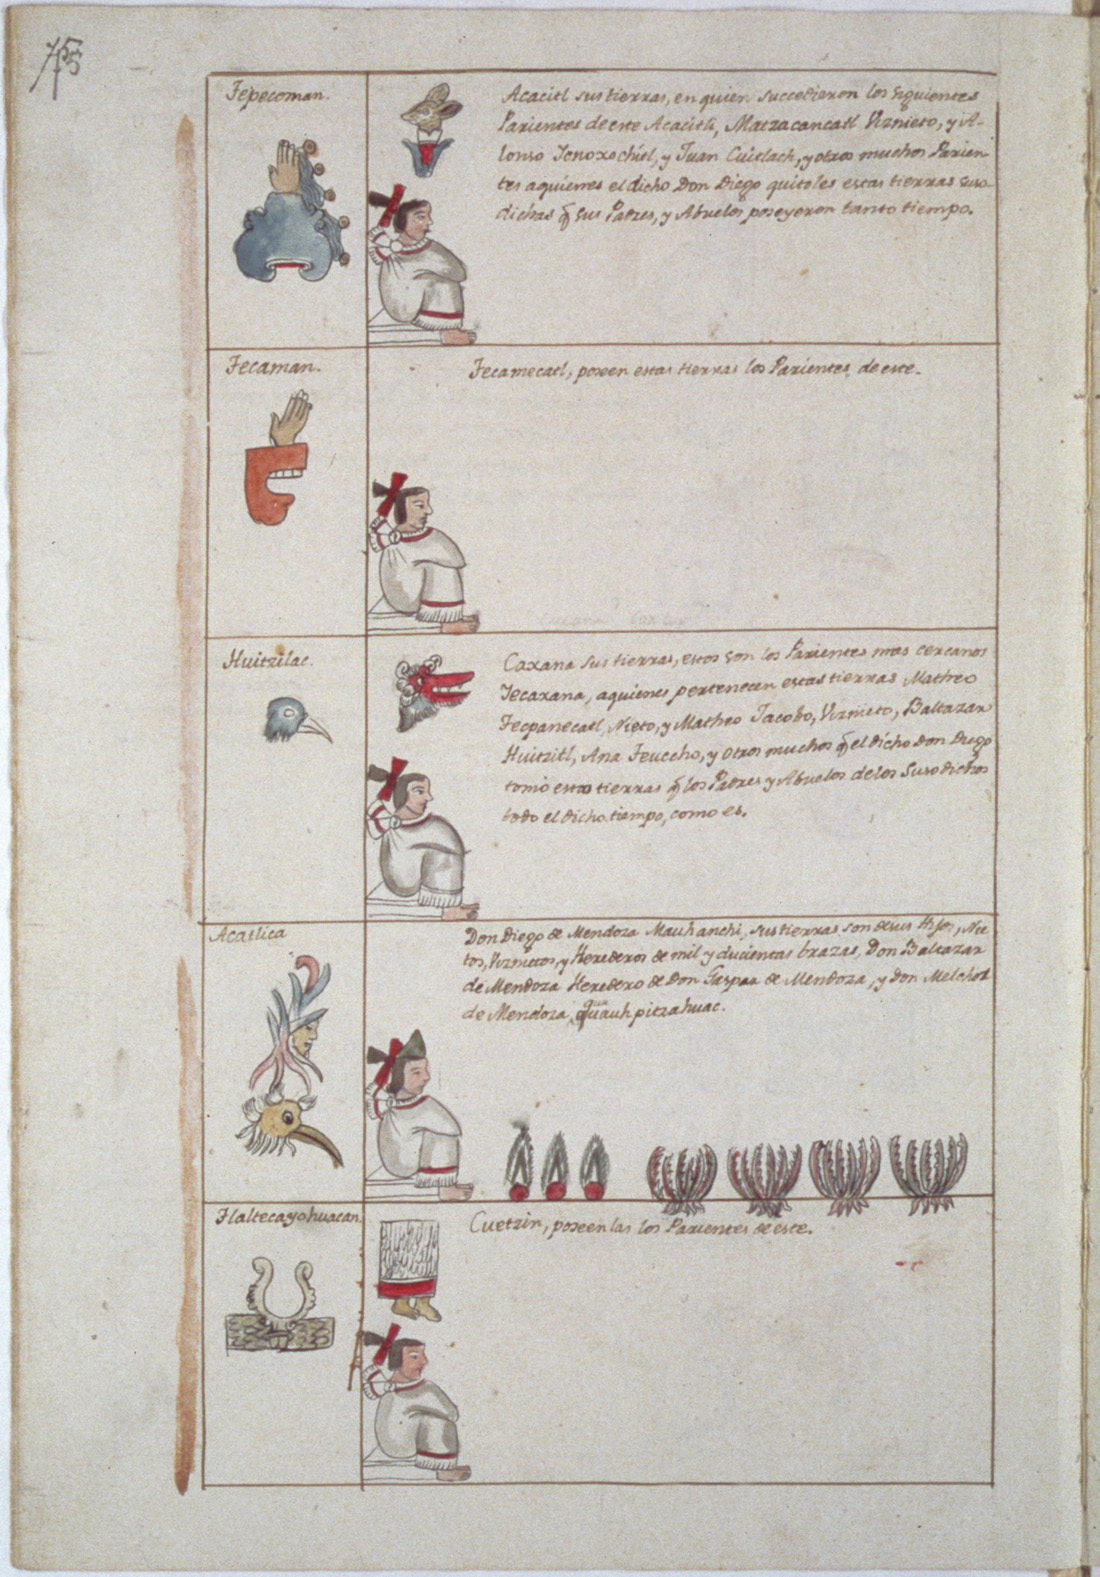 Tepecoman.
Acacitl sus tierras, en quien succedieron los siguientes
Parientes de este Acacitli, Matzacancatl Viznieto, y A-
lonso Tenoxochitl, y Juan Cuitlach, y otros muchos Parien-
tes aquienes el dicho Don Diego quitoles estas tierras suso-
dichas q̃ sus Padres, y Abuelos poseyeron tanto tiempo.
Tecaman.
Tecamecatl, poseen estas tierras los Parientes de este.
Huitzilac.
Caxana sus tierras, estos son los Parientes mas cercanos
Tecaxana, aquienes pertenecen estas tierras Matheo
Tecpanecatl, Nieto, y Matheo Jacobo, Viznieto, Baltazar
Huitzitl, Ana Teuccho, y otros muchos q̃ el dicho Don Diego
tomó estas tierras q̃ los Padres y Abuelos de los Susodichos
todo el dicho tiempo, como es.
Acatlica
Don Diego de Mendoza Mauhanchi, sus tierras son de sus Hijos, Nie-
tos, Viznietos, y Herederos de mil y ducientas brazas, Don Baltazar
de Mendoza Heredero de Don Gaspar de Mendoza, y Don Melchor
de Mendoza quauhpitzahuac.
Tlaltecayohuacan.
Cuetzin, poseenlas los Parientes de este.